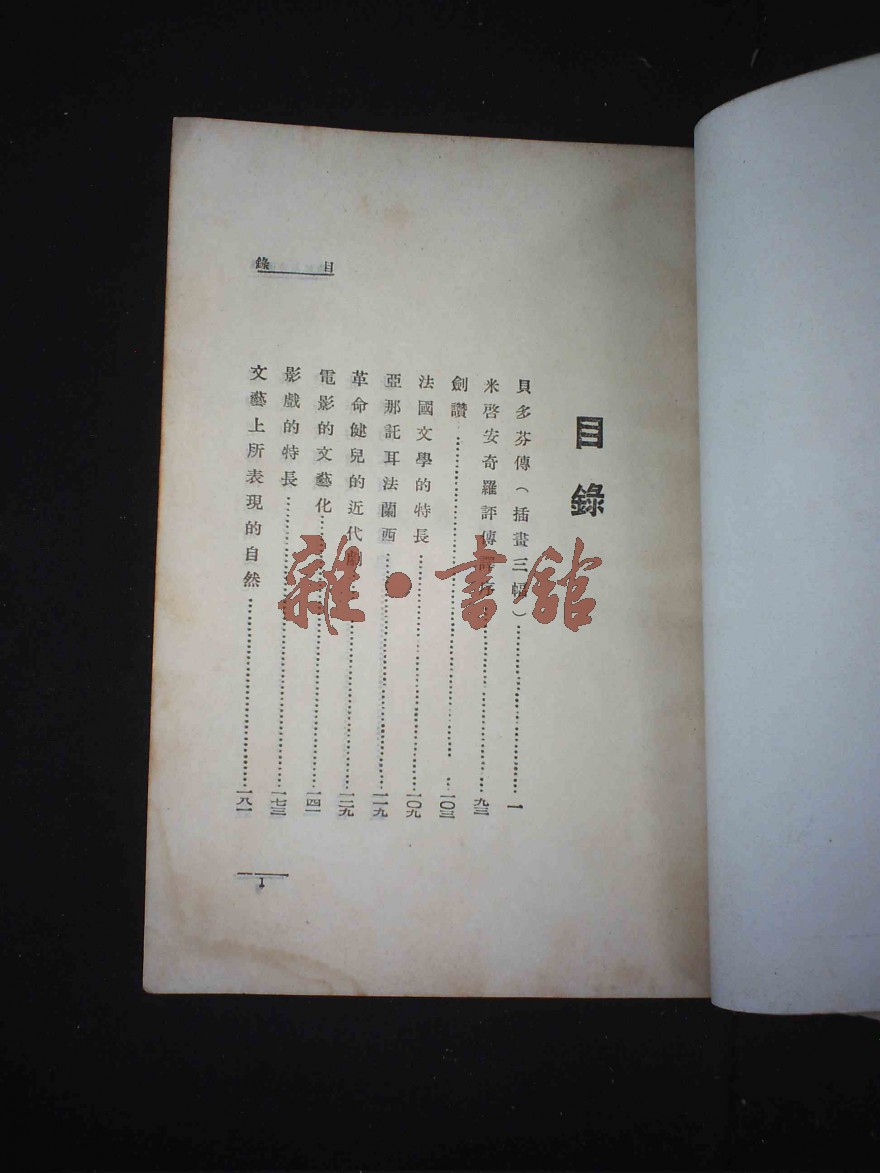 目錄
目錄
貝多芬傳（插畫三幅）……一
米啓安奇羅評傳……九三
劍讚……一〇三
法國文學的特長……一〇九
亞那託耳法蘭西……一一九
革命健兒的近代劇……一二九
電影的文藝化……一四一
影戲的特長……一七三
文藝上所表現的自然……一八一
1
雜·書館